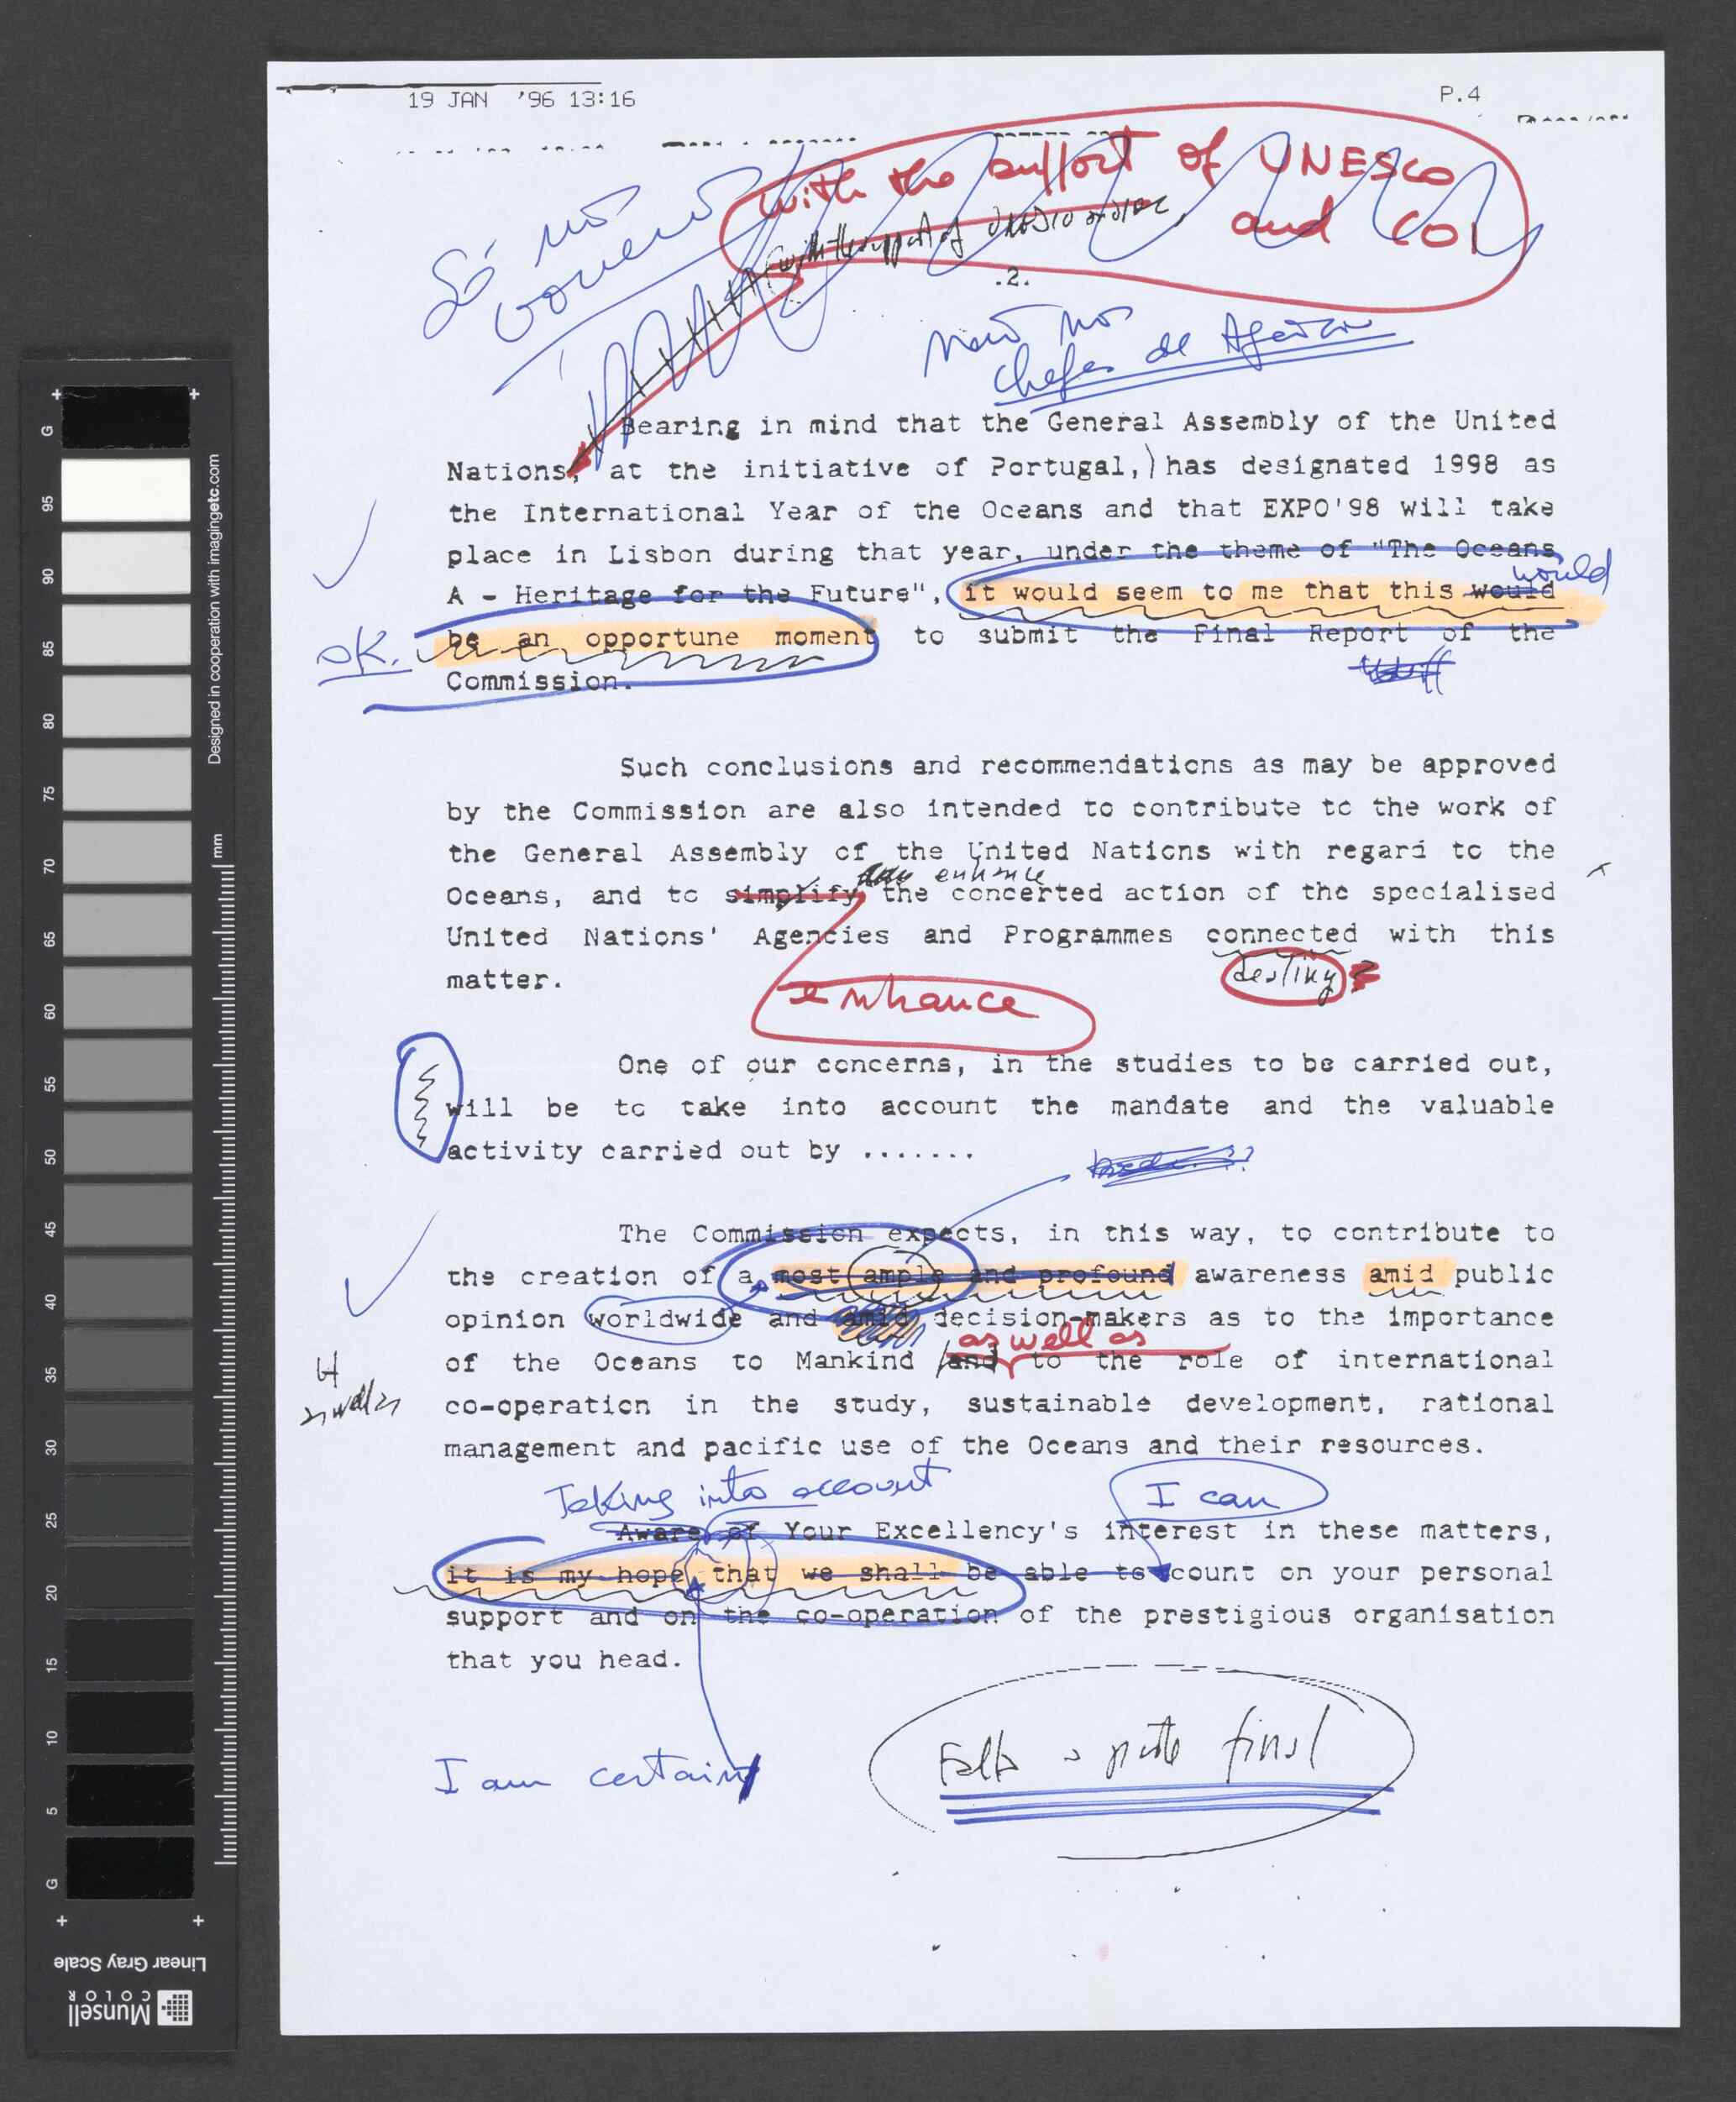 19 JAN '96 13:16
P.4
with the support of UNESCO
and COI
Só no
with the support of
.2.
não nos
chefes de
Bearing in mind that the General Assembly of the United
Nations, at the initiative of Portugal,) has designated 1998 as
the International Year of the Oceans and that EXPO'98 will take
place in Lisbon during that year, under the theme of "The Oceans
would
A - Heritage for the Future", it would seem to me that this would
OK.
be an opportune moment to submit the Final Report of the
Commission.
Such conclusions and recommendations as may be approved
by the Commission are also intended to contribute to the work of
the General Assembly of the United Nations with regard to the
enhance
Oceans, and to simplify the concerted action of the specialised
United Nations' Agencies and Programmes connected with this
destiny
matter.
enhance
One of our concerns, in the studies to be carried out,
will be to take into account the mandate and the valuable
activity carried out by .......
The Commission expects, in this way, to contribute to
the creation of a most ample and profound awareness amid public
opinion worldwide and amid decision-makers as to the importance
as well as
of the Oceans to Mankind and to the role of international
co-operation in the study, sustainable development, rational
management and pacific use of the Oceans and their resources.
Taking into account
I can
Aware of Your Excellency's interest in these matters,
it is my hope that we shall be able to count on your personal
support and on the co-operation of the prestigious organisation
that you head.
I am certain
Falta a parte final
G 95 90 85 80 75 70 65 60 55 50 45 40 35 30 25 20 15 10 5 G
Designed in cooperation with imagingetc.com
mm
Linear Gray Scale
Munsell
COLOR